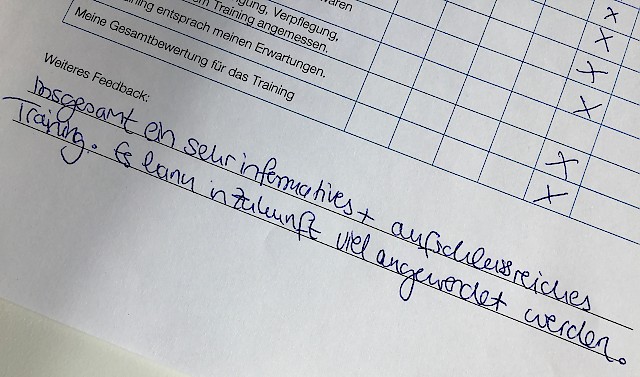 gung, Verpflegung,
m Training angemessen.
ining entsprach meinen Erwartungen.
Meine Gesamtbewertung für das Training
Weiteres Feedback:
Insgesamt ein sehr informatives + aufschlussreiches
Training. Es kann in Zukunft viel angewendet werden.